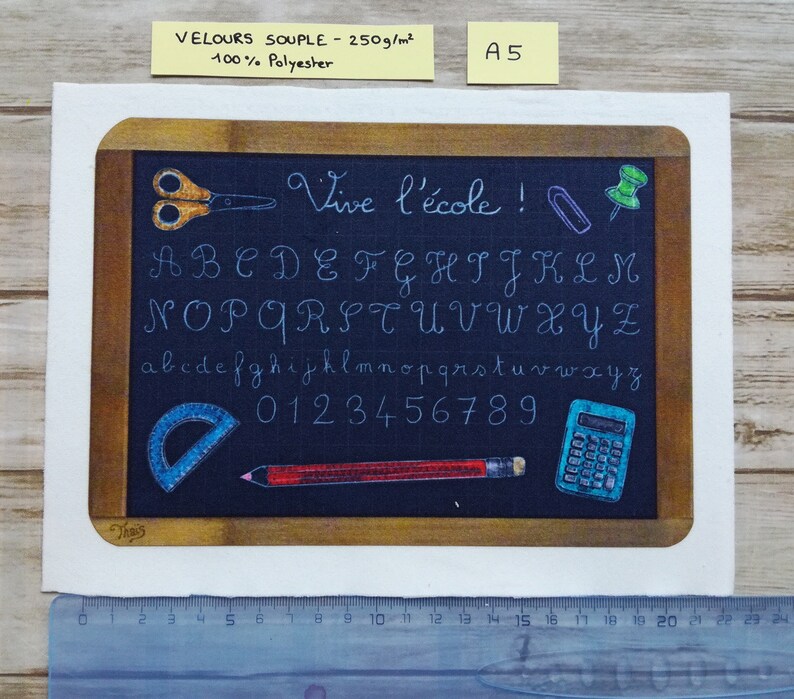 VELOURS SOUPLE - 250g/m²
100% Polyester
A5
Vive l'école !
A B C D E F G H I J K L M
N O P Q R S T U V W X Y Z
a b c d e f g h i j k l m n o p q r s t u v w x y z
0 1 2 3 4 5 6 7 8 9
Thaïs
0 1 2 3 4 5 6 7 8 9 10 11 12 13 14 15 16 17 18 19 20 21 22 23 24